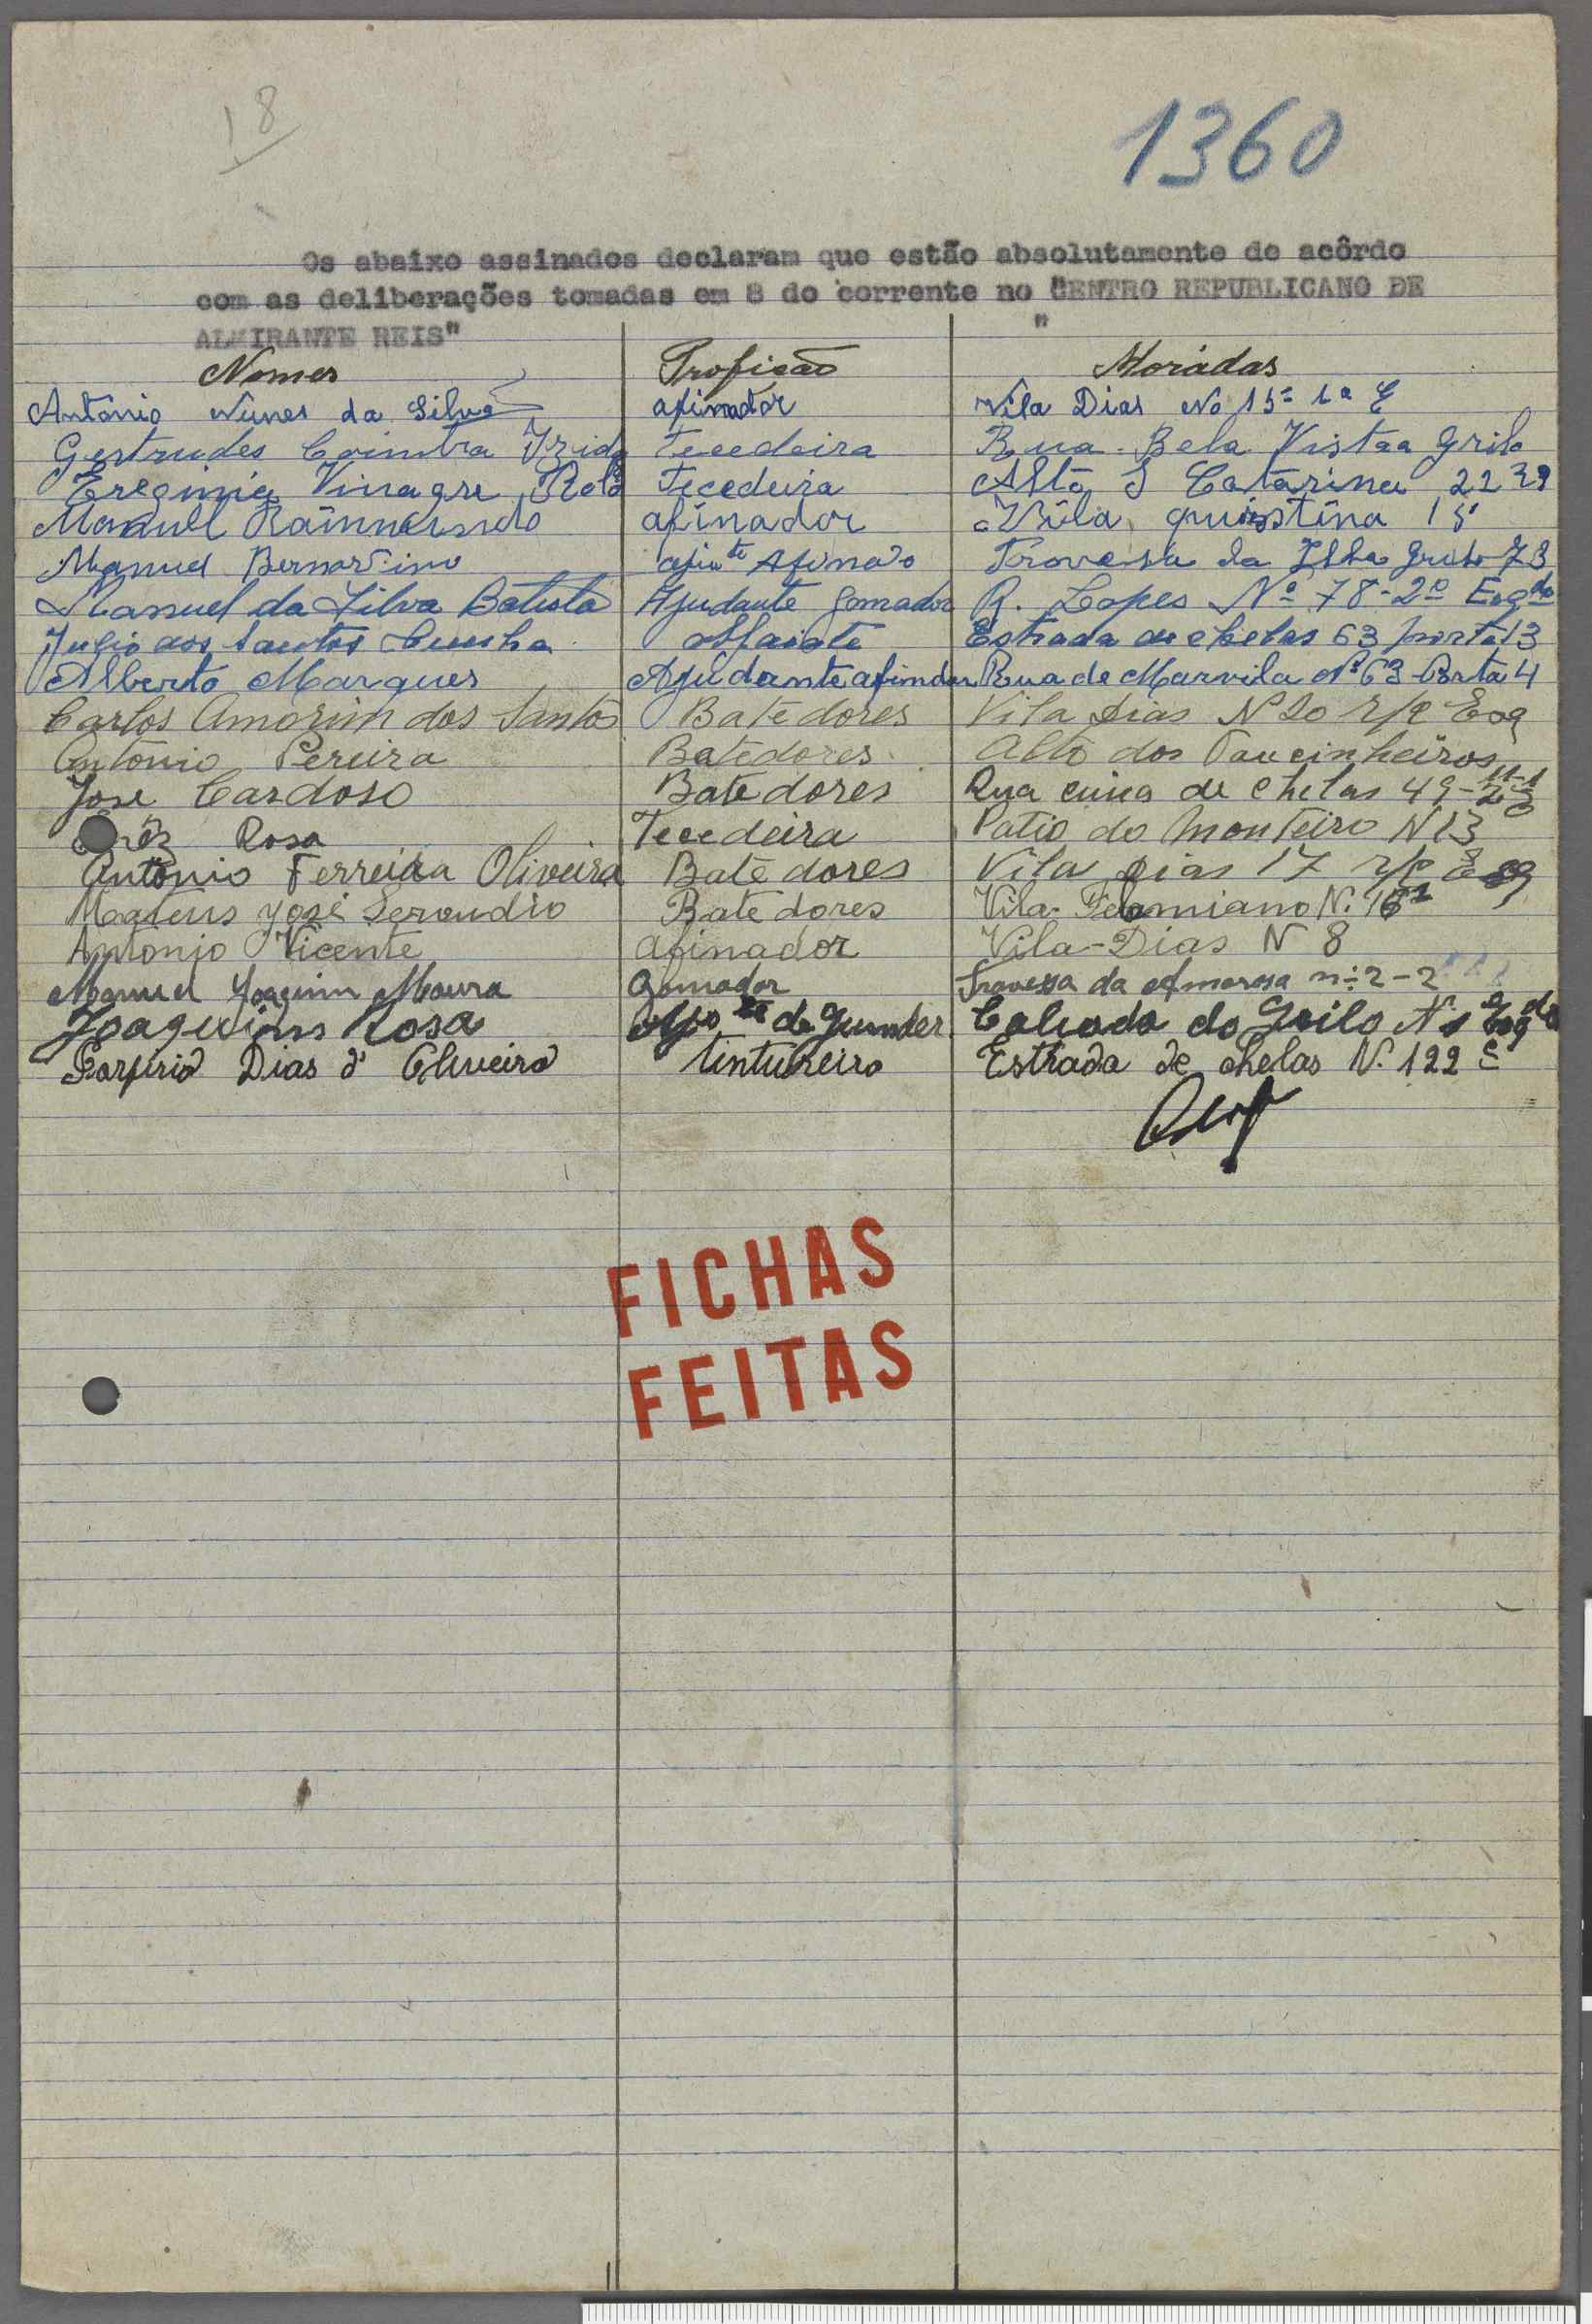 18
1360
Os abaixo assinados declaram que estão absolutamente de acôrdo
com as deliberações tomadas em 8 do corrente no "CENTRO REPUBLICANO DE
ALMIRANTE REIS"
Nomes Profição Moradas
António Nunes da Silva afinador Vila Dias No 15 = 1º E
Gertrudes Coimbra Tecedeira Rua Bela Vistaa Grilo
Vinagre Tecedeira Alto S Catarina 22
Manuel afinador Vila 15
Manuel Bernardino Afinado da Ilha Grilo 73
Manuel da Silva Batista Ajudante Gomador R. Lopes Nº 78-2º Esqdo
Julio dos Santos Cunha Alfaiate Estrada de chelas 63 porta 13
Alberto Marques Ajudante afinder Rua de Marvila Nº 63 Porta 4
Carlos Amorim dos Santos Batedores Vila Dias N 20 r/c Esq
António Pereira Batedores Alto dos Toucinheiros
José Cardoso Batedores Rua cima de Chelas 49
Rosa Tecedeira Patio do Monteiro N 13
António Ferreira Oliveira Batedores Vila Dias 17 r/c Esq
Mateus José Serondio Batedores Vila
António Vicente Afinador Vila-Dias N 8
Manuel Joaquim Moura Gomador Travessa da Amorosa nº 2-2
Joaquim Rosa de Calcada do Grilo Nº 1
Porfirio Dias d' Oliveira tintureiro Estrada de chelas N. 122 c
FICHAS
FEITAS